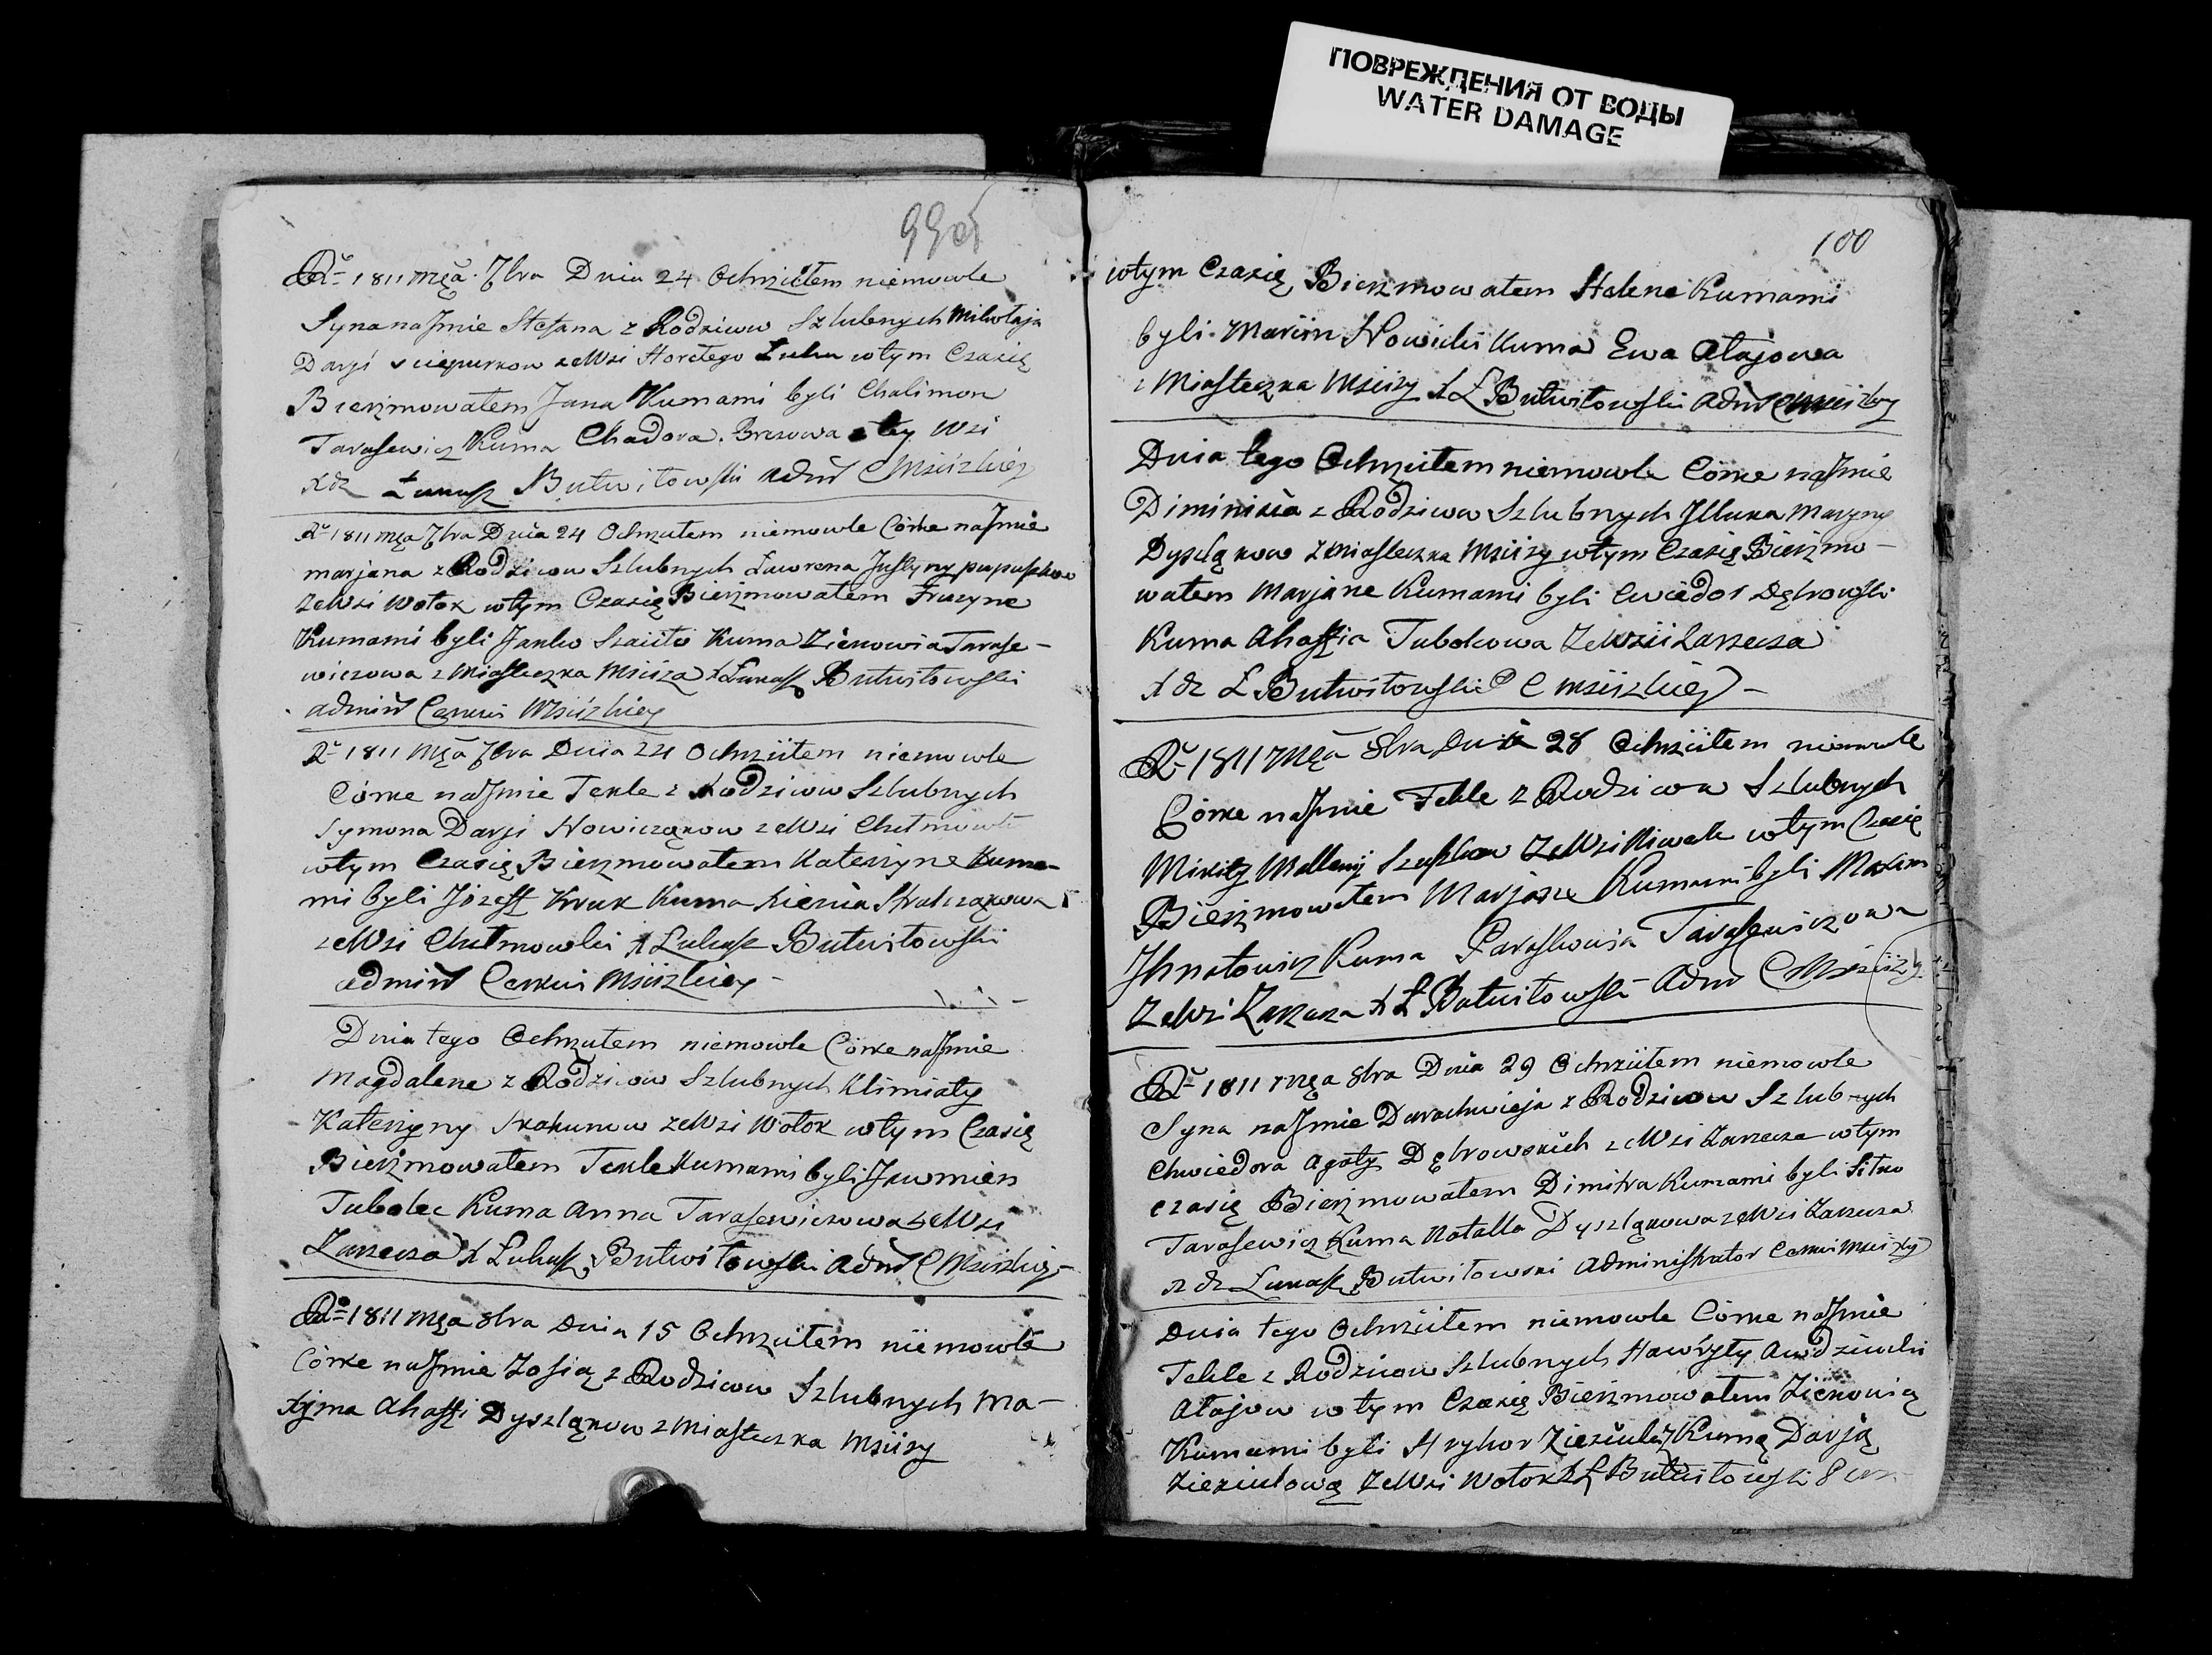 ПОВРЕЖДЕНИЯ ОТ ВОДЫ
WATER DAMAGE
99об
Rᵘ 1811 Mca 7bra Dnia 24 Ochrzciłem niemowle
Syna na Jmie Stefana z Rodziców Szlubnych Mikołaja
Daryi zeWsi Horełego Luhu wtym Czasię
Bierzmowałem Jana Kumami byli Chalimon
Tarasewicz Kuma Chadora Brezowa z tey Wsi
XDz Łukasz Butwiłowski Admr C Msiżskiey
Rᵘ 1811 Mca 7bra Dnia 24 Ochrzciłem niemowle Córke na Jmie
Marjana z Rodziców Szlubnych Ławrena Justyny
zeWsi Wołok wtym Czasię Bierzmowałem Fruzyne
Kumami byli Janko Kuma Zienowia Tarase-
wiczowa z Miasteczka Msiża X Łukasz Butwiłowski
Admin Cerkwi Msiżskiey
Rᵘ 1811 Mca 7bra Dnia 24 Ochrzciłem niemowle
Córke na Jmie Tekle z Rodziców Szlubnych
Symona Daryi Nowicząkow zeWsi
wtym Czasię Bierzmowałem Katerzyne Kuma-
mi byli Józeff Kruk Kuma
zeWsi Chełmowki X Łukasz Butwiłowski
admin Cerkwi Msiżskiey
Dnia tego Ochrzciłem niemowle Córke na Jmie
Magdalene z Rodziców Szlubnych Klimiaty
Katerzyny zeWsi Wołok wtym Czasię
Bierzmowałem Tekle Kumami byli Jwmien
Tubolec Kuma Anna Tarasewiczowa zeWsi
Zarzecza X Łukasz Butwiłowski Admr C Msiżskiey
Rᵘ 1811 Mca 8bra Dnia 15 Ochrzciłem niemowle
Córke na Jmie Zosią z Rodziców Szlubnych Ma-
xyma Ahaffi Dyszląkow z Miasteczka Msiży
100
wtym Czasię Bierzmowałem Halene Kumami
byli Marcin Nowicki Kuma Ewa Ałajowa
z Miasteczka Msiży X Ł Butwiłowski Admr C Msiżskiey
Dnia tego Ochrzciłem niemowle Córke na Jmie
z Rodziców Szlubnych Maryny
Dyszląkow z Miasteczka Msiży wtym Czasię Bierzmo-
wałem Marjane Kumami byli Dąbrowski
Kuma Ahaffia Tubolcowa zeWsii Zarzecza
XDz Ł Butwiłowski C Msiżskiey
Rᵘ 1811 Mca 8bra Dnia 28 Ochrzciłem niemowle
Córke na Jmie Tekle z Rodziców Szlubnych
Mikity zeWsi wtym Czasię
Bierzmowałem Marjane Kumami byli Maxim
Jhnatowicz Kuma Paraskowia Tarasewiczowa
zeWsi Zarzecza X Ł Butwiłowski Admr C Msiżskiey
Rᵘ 1811 Mca 8bra Dnia 29 Ochrzciłem niemowle
Syna na Jmie z Rodziców Szlubnych
Chwiedora Agaty Dąbrowskich zeWsi Zarzecza wtym
czasię Bierzmowałem Dimitra Kumami byli
Tarasewicz Kuma Natalla Dyszląkowa zeWsi Zarzecza
XDz Łukasz Butwiłowski Administrator Cerkwi Msiżskiey
Dnia tego Ochrzciłem niemowle Córke na Jmie
Tekle z Rodziców Szlubnych Hawryły Awdziuchi
Ałajow wtym Czasię Bierzmowałem Zienowią
Kumami byli Hryhor Zieziula Kumą Darją
Zieziulową zeWsi Wołok X Ł Butwiłowski